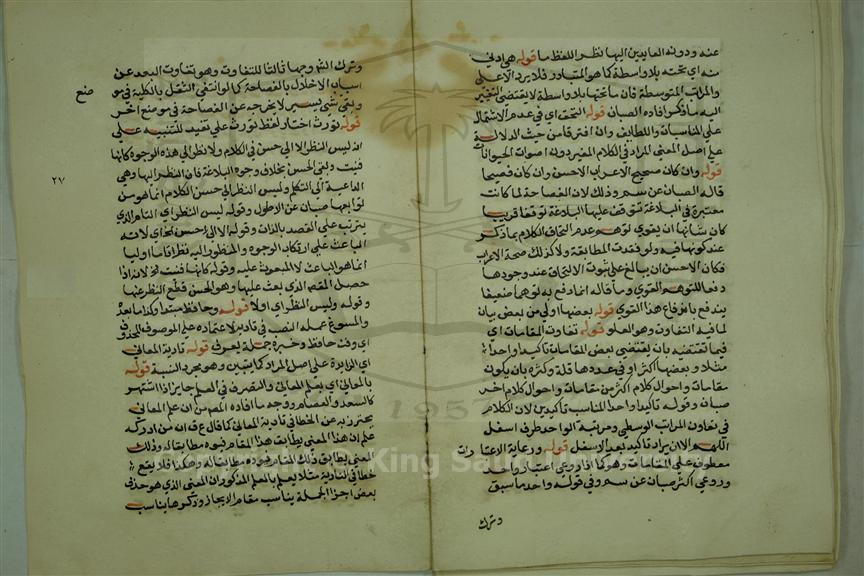 عنه ودونه العابدين اليها نظر اللفظ ما قوله هي ادني
منه اي تحته بلا واسطة كما هو المتبادر فلا يرد الاعلى
والمراتب المتوسطة فان ما تحتها بلا واسطة لا يقتضي التغير
اليه ما ذكر افاده الصبان قوله التحق اي في عدم الاشتمال
علي المناسبات واللطايف وان افترقا من حيث الدلالة
علي اصل المعني المراد في الكلام المفيد دونه اصوات الحيوانات
قوله وان كان صحيح الاعراب الاحسن وان كان فصيحا
قاله الصبان عن سم وذلك لان الفصاحة لما كانت
معتبرة في البلاغة تتوقف عليها البلاغة توقفا قريبا
كان شانها ان يقوي توهم عدم التحاق الكلام بما ذكر
عند كونها فيه ولو فقدت المطابقة ولا كذلك صحة الاعراب
فكان الاحسن ان يبالغ علي ثبوت الالتحاق عند وجودها
دفعا للتوهم القوي وما قاله انما دفع به توهما ضعيفا
يندفع باندفاع هذا القوي قوله بعضها اولي من بعض بيان
لما فيه التفاوت وهو العلو قوله تفاوت المقامات اي
فيما تقتضيه بان يقتضي بعض المقامات تاكيدا واحدا
مثلا وبعضها اكثر او في عددها قلة وكثرة بان يكون
مقامات واحوال كلام اكثر من مقامات واحوال كلام اخر
صبان وقوله تاكيدا واحدا المناسب تاكيدين لان الكلام
في تفاوت المراتب الوسطي ومرتبة الواحد طرف اسفل
اللهم الا ان يراد تاكيد بعد الاسفل قوله ورعاية الاعتبارات
معطوف علي المقامات وهو كما اذا روعي اعتبار واحد
وروعي اكثر صبان عن سم وفي قوله واحد ما سبق
وترك
وترك الشم وجها ثالثا للتفاوت وهو تفاوت البعد عن
اسباب الاخلال بالفصاحة كما لو انتفي الثقل بالكلية في مو
ضع
وبقي شي يسير لا يخرجه عن الفصاحة في موضع اخر
قوله تورث اختار لفظ تورث علي تفيد للتنبيه علي
انه ليس النظر الا الي حسن في الكلام ولا نظر الي هذه الوجوه كانها
فنيت وبقي الحسن بخلاف وجوه البلاغة فان النظر اليها وهي
الداعية الي التكلم وليس النظر الي حسن الكلام انما هو من
توابعها صبان عن الاطول وقوله ليس النظر اي التام الذي
يترتب علي القصد بالذات وقوله الا الي حسن الخ اي لانه
الباعث علي ارتكاب الوجوه والمنظور اليه نظرا تاما اوليا
انما هو الباعث لا المبعوث عليه وقوله كانها فنيت الخ لانه اذا
حصل المقصد الذي بعث عليها وهو الحسن قطع النظر عنها
وقوله وليس النظر اي اولا قوله وحافظ مبتدا وكذا ما بعده
والمسوغ عمله النصب في تادية لاعتماده علي الموصوف المحذوف
اي وفن حافظ وخبره جملة يعرف قوله تادية المعاني
اي الزايدة علي اصل المراد كما يتبين وهو مجرد النسبة قوله
بالمعاني اي بعلم المعاني والتصرف في العلم جايز اذا اشتهر
كالسعد والعصام ووجه ما افاده المصم من ان علم المعاني
يحترز به عن الخطا في تادية المعاني كما قال ع ق ان من ادركه
علم ان هذا المعني يطابق هذا المقام فيوه مطابقا له وذلك
المعني يطابق ذلك المقام فيوه مطابقا له وهكذا فلا يقع
خطا في التادية مثلا يعلم بالعلم المذكور ان المعني الذي هو حذف
بعض اجزا الجملة يناسب مقام الايجاز وذكرها يناسب
٢٧
King Saud
1957